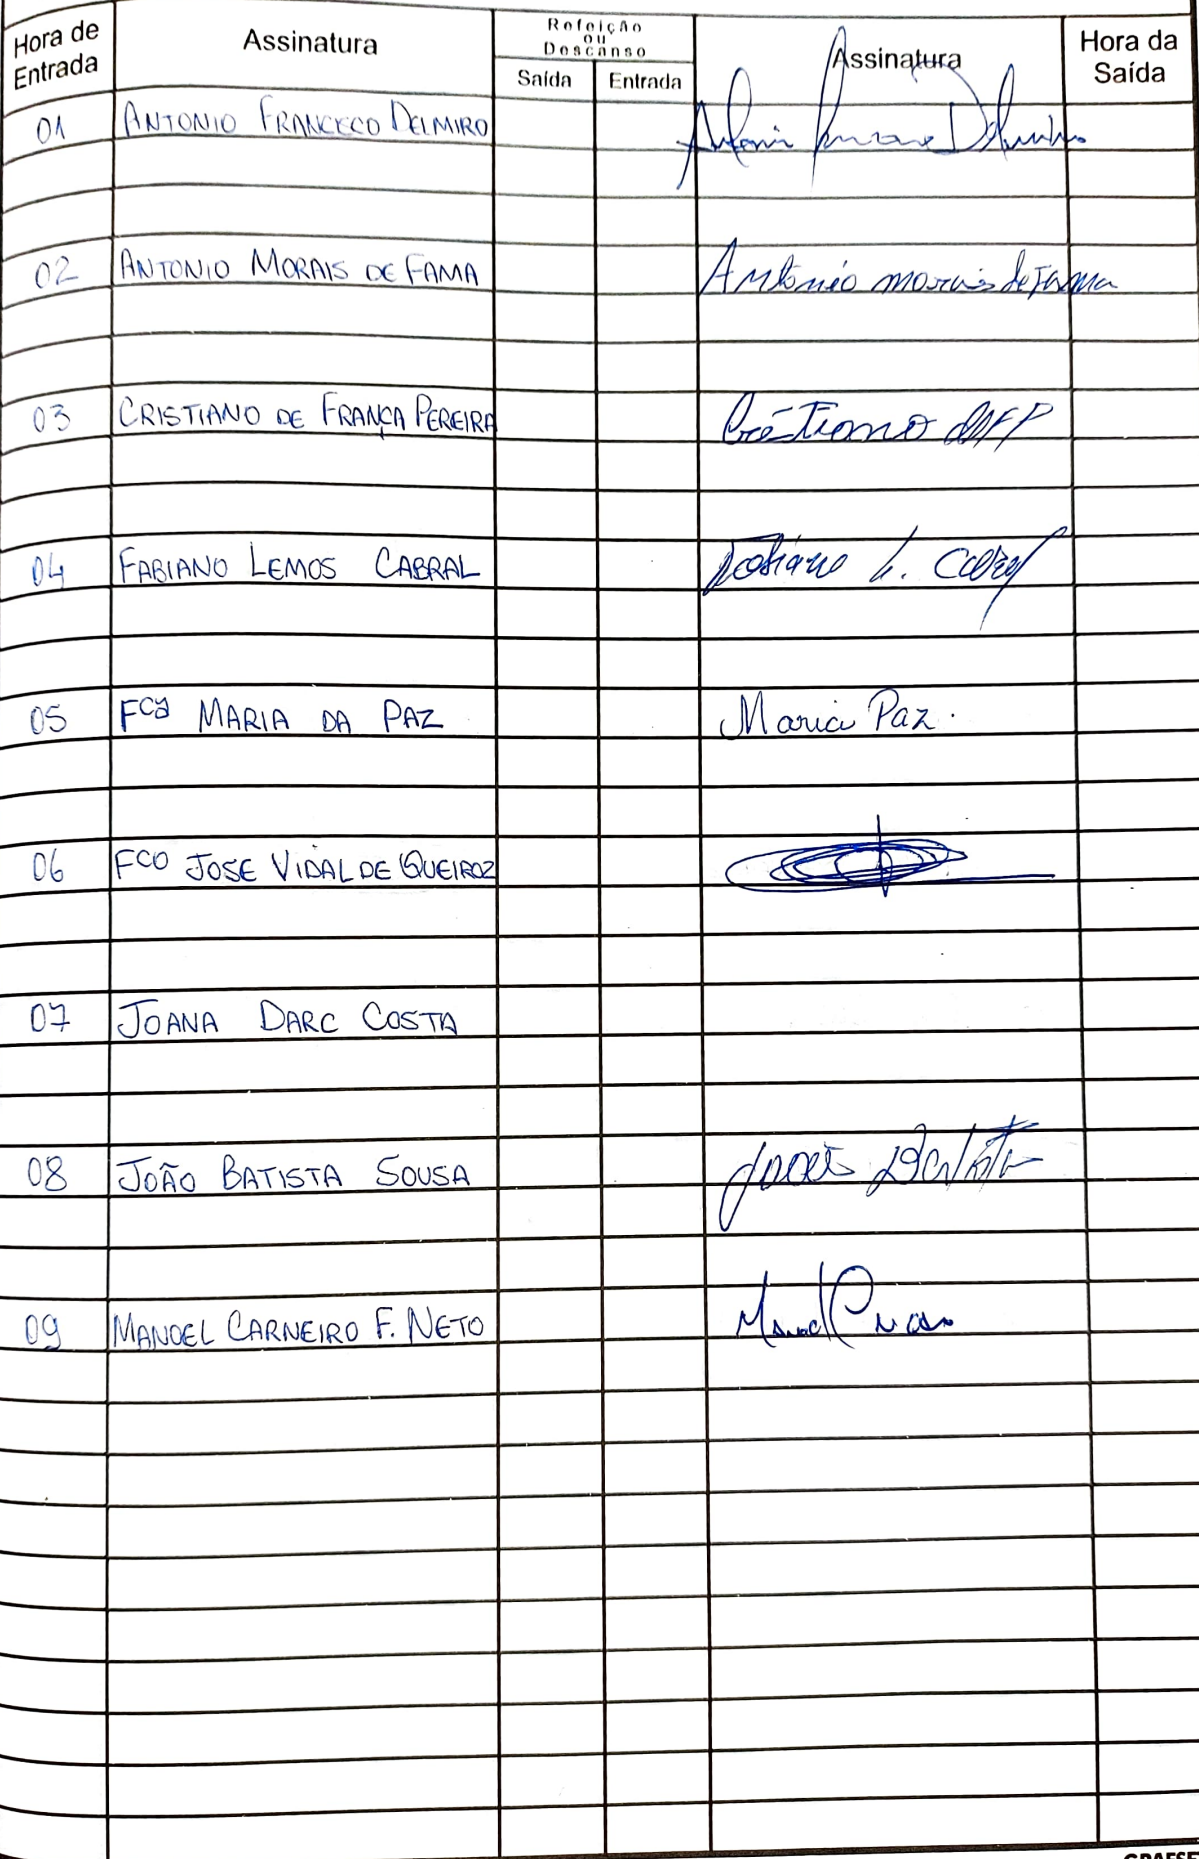 Hora de Entrada Assinatura Refeição ou Descanso Assinatura Hora da Saída
Saída Entrada
01 ANTONIO FRANCECO DELMIRO Antonio Delmiro
02 ANTONIO MORAIS DE FAMA Antonio morais de Fama
03 CRISTIANO DE FRANÇA PEREIRA
04 FABIANO LEMOS CABRAL Fabiano L. Cabral
05 FCA MARIA DA PAZ Maria Paz.
06 FCO JOSE VIDAL DE QUEIROZ
07 JOANA DARC COSTA
08 JOÃO BATISTA SOUSA João Batista
09 MANOEL CARNEIRO F. NETO Manoel